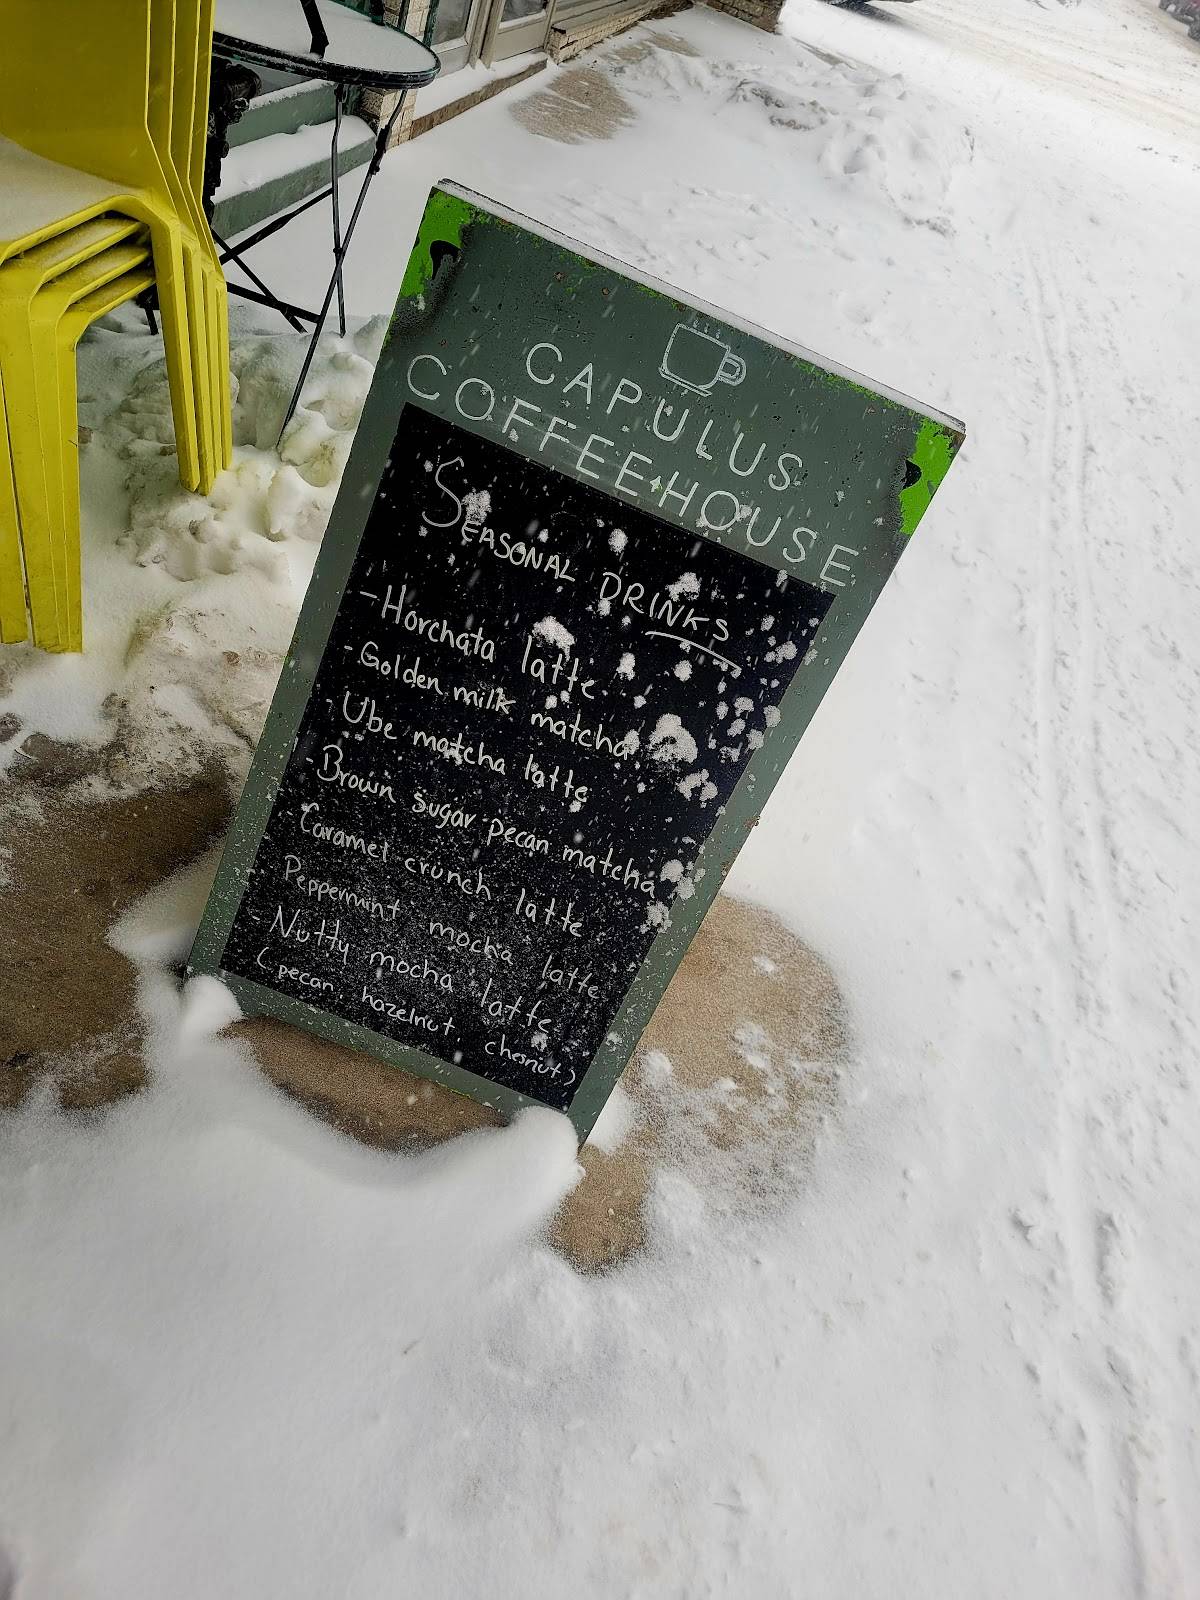 CAPULUS
COFFEE HOUSE
SEASONAL DRINKS
- Horchata latte
- Golden milk matcha
- Ube matcha latte
- Brown sugar pecan matcha
- Caramel crunch latte
Peppermint mocha latte
- Nutty mocha latte
(pecan, hazelnut, chesnut)